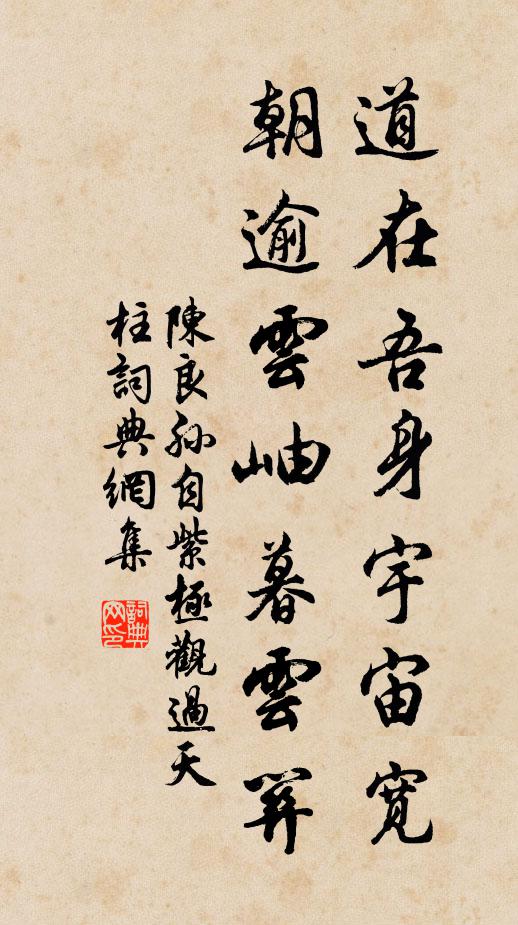 道在吾身宇宙寬
朝逾雲岫暮雲關
陳良孫自紫極觀過天
柱詞典網集
詞典
网印